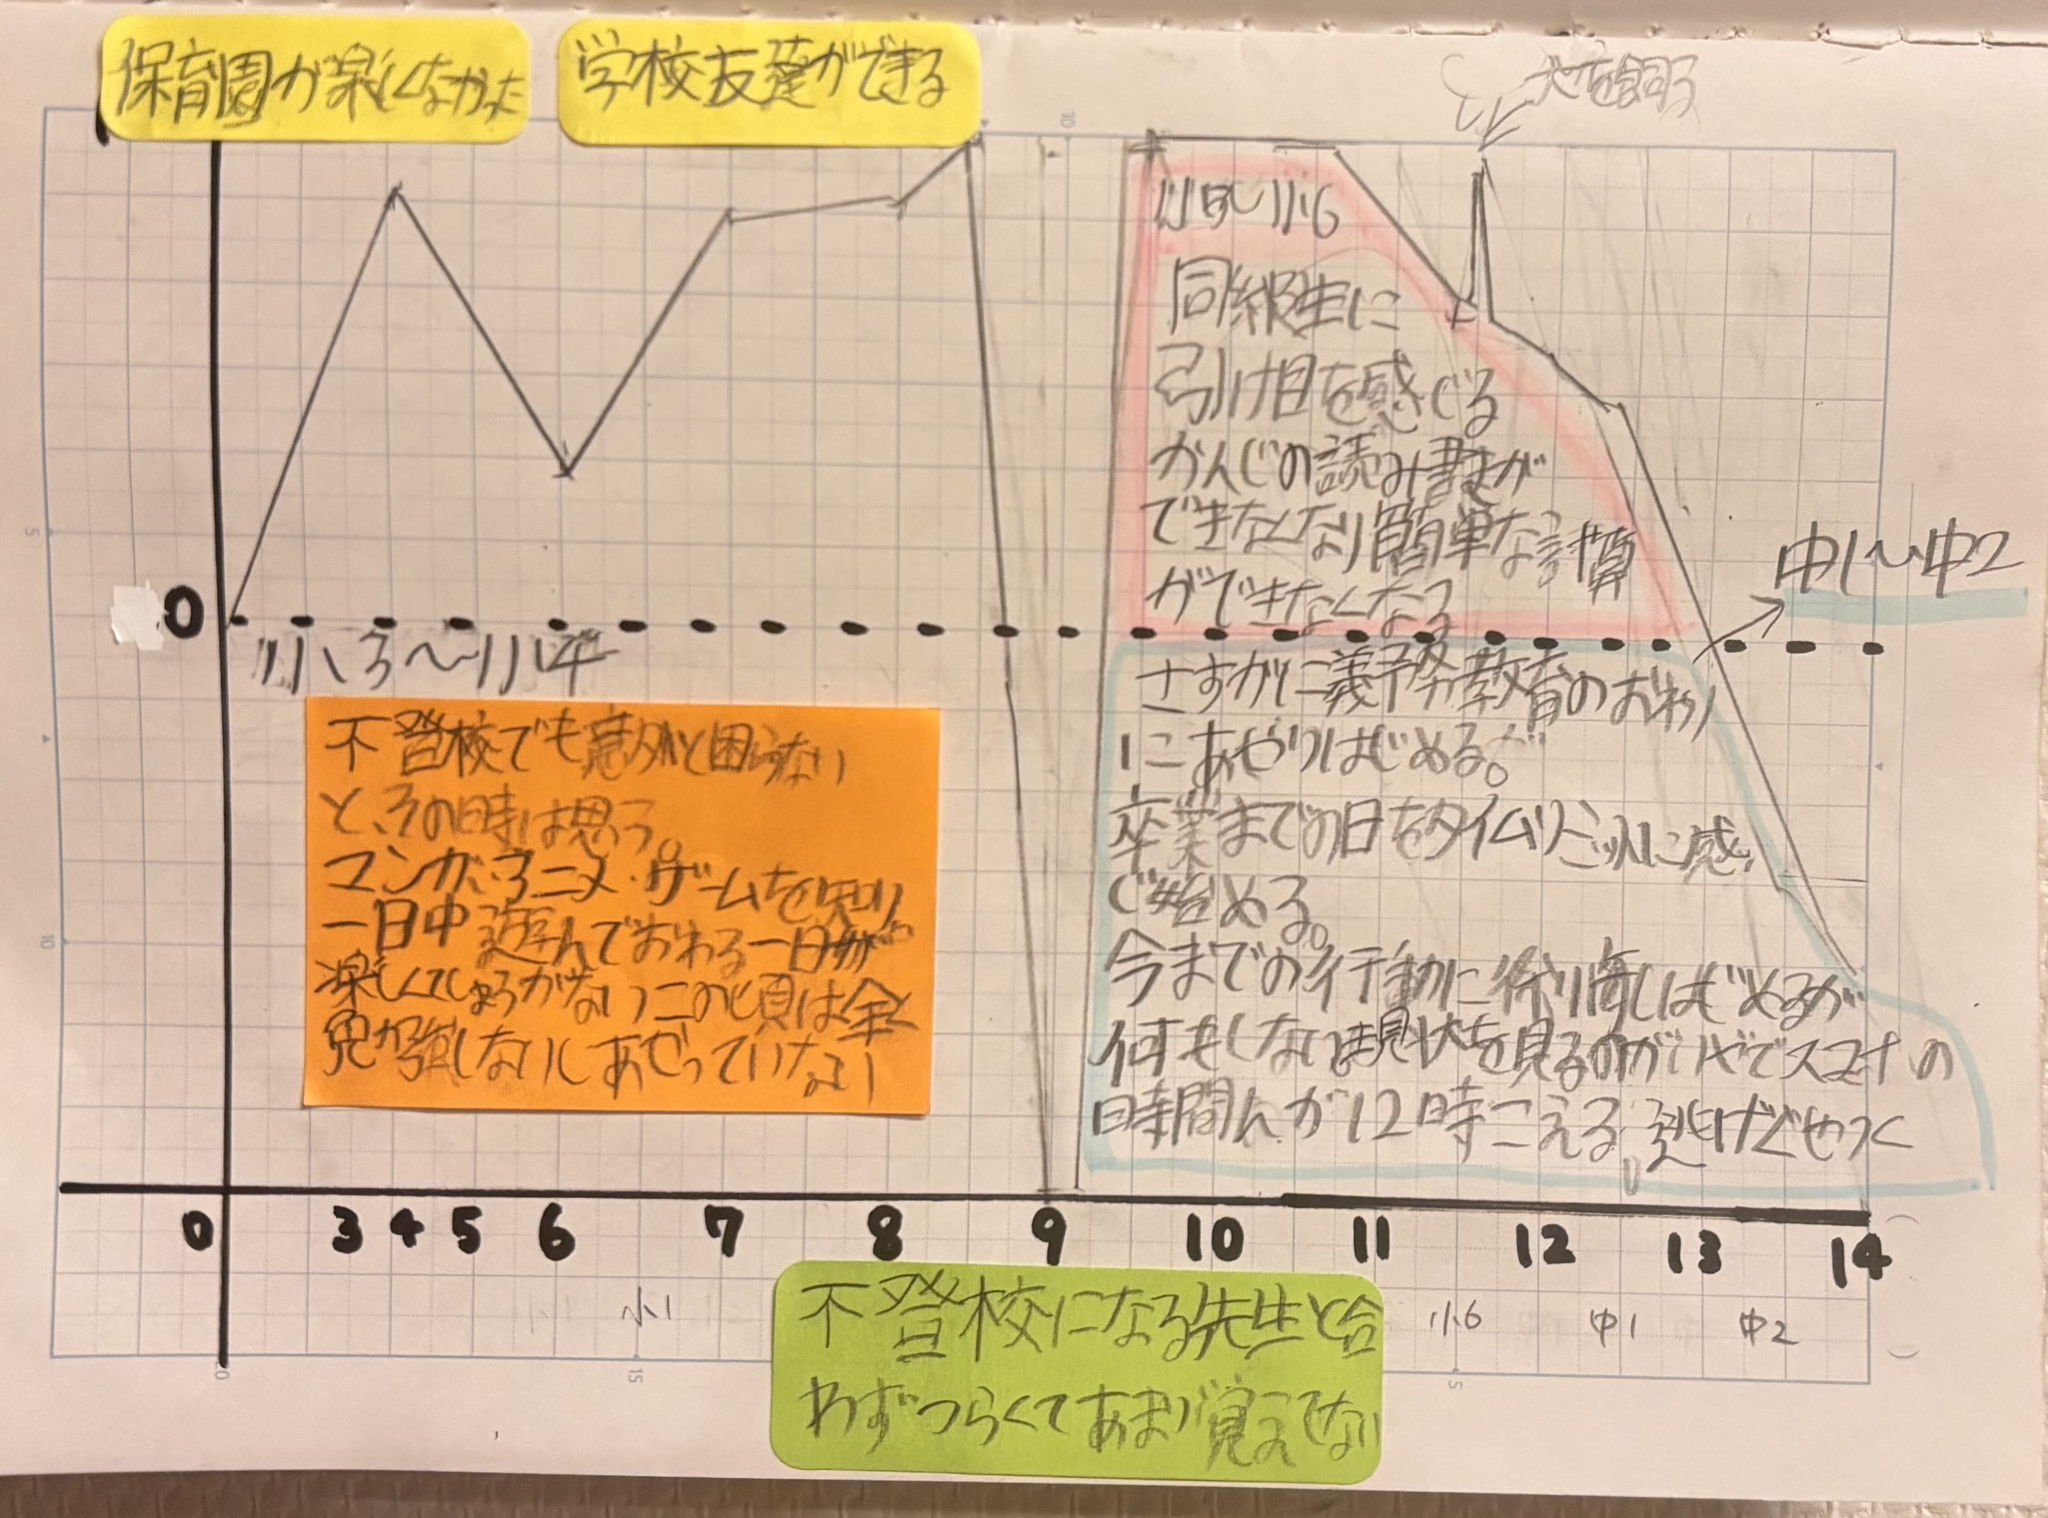 保育園が楽しなかった
学校友達ができる
犬を飼う
小5〜小6
同級生に
引け目を感じる
かんじの読み書きが
できなくなり簡単な計算
ができなくなる
中1〜中2
0
小3〜小4
不登校でも意外と困らない
と、その時は思う。
マンガ、アニメ・ゲームを知り、
一日中遊んでおわる一日が
楽しくてしょうがない この頃は全く
勉強しないしあせっていない
さすがに義務教育のおわり
にあせりはじめる。が
卒業までの日をタイムリミットに感
じ始める。
今までの行動に後悔しはじめるが
何もしない現状を見るのがいやでスマホの
時間が12時こえる。
0 3 4 5 6 7 8 9 10 11 12 13 14
小1 小6 中1 中2
不登校になる先生と合
わずつらくてあまり覚えてない